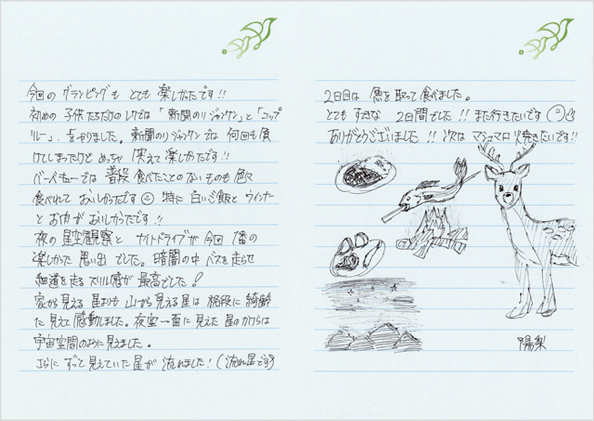 今回の グランピングも とても 楽しかったです!!
初めの 子供たちだけのレクでは「新聞のりジャンケン」と「コップ
リレー」をやりました。新聞のりジャンケンでは 何回も負
けてしまったけど めっちゃ 笑えて 楽しかったです!!
バーベキューでは 普段 食べたことのないものも 色々
食べれて おいしかったです 特に 白いご飯と ウインナー
と お肉が おいしかったです!!
夜の 星空観察と ナイトドライブが 今回 1番の
楽しかった 思い出 でした。暗闇の中 バスを走らせ
細道を走る スリル感が 最高でした!
家から見える 星よりも 山から見える星は 格段に 綺麗
に 見えて 感動しました。夜空一面に見えた 星のかけらは
宇宙空間のように見えました。
さらに ずっと見えていた星が 流れました!(流れ星です)
2日目は 魚を取って食べました。
とても すてきな 2日間でした!! また行きたいです
ありがとうございました!! 次は マシュマロ 焼きたいです!!
陽梨